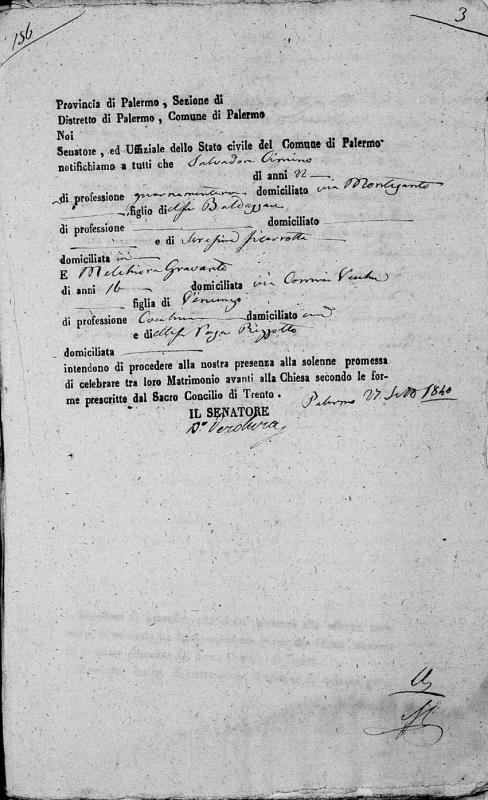 156
3
Provincia di Palermo, Sezione di
Distretto di Palermo, Comune di Palermo
Noi
Senatore, ed Uffiziale dello Stato civile del Comune di Palermo
notifichiamo a tutti che Salvadore Cimino
di anni 22
di professione domiciliato via Montesanto
figlio di Baldassare
di professione domiciliato
e di Serafina Picarrotta
domiciliata ivi
E Melchiora Gravanti
di anni 16 domiciliata via
figlia di Vincenzo
di professione damiciliato ivi
e di Rizzotto
domiciliata
intendono di procedere alla nostra presenza alla solenne promessa
di celebrare tra loro Matrimonio avanti alla Chiesa secondo le for-
me prescritte dal Sacro Concilio di Trento.
Palermo 27 1840
IL SENATORE
Verdura